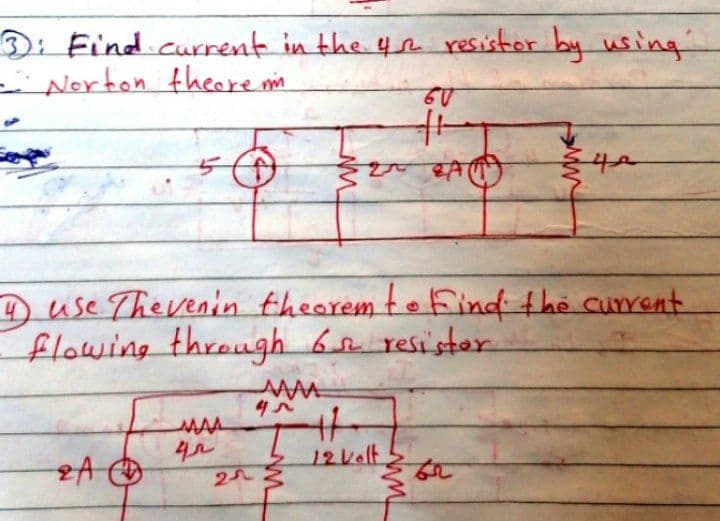 ③: Find current in the 4Ω resistor by using
Norton theorem
6V
5
2Ω
2A
4Ω
④ use Thevenin theorem to Find the current
flowing through 6Ω resistor
4Ω
4Ω
12 Volt
2A
2Ω
6Ω